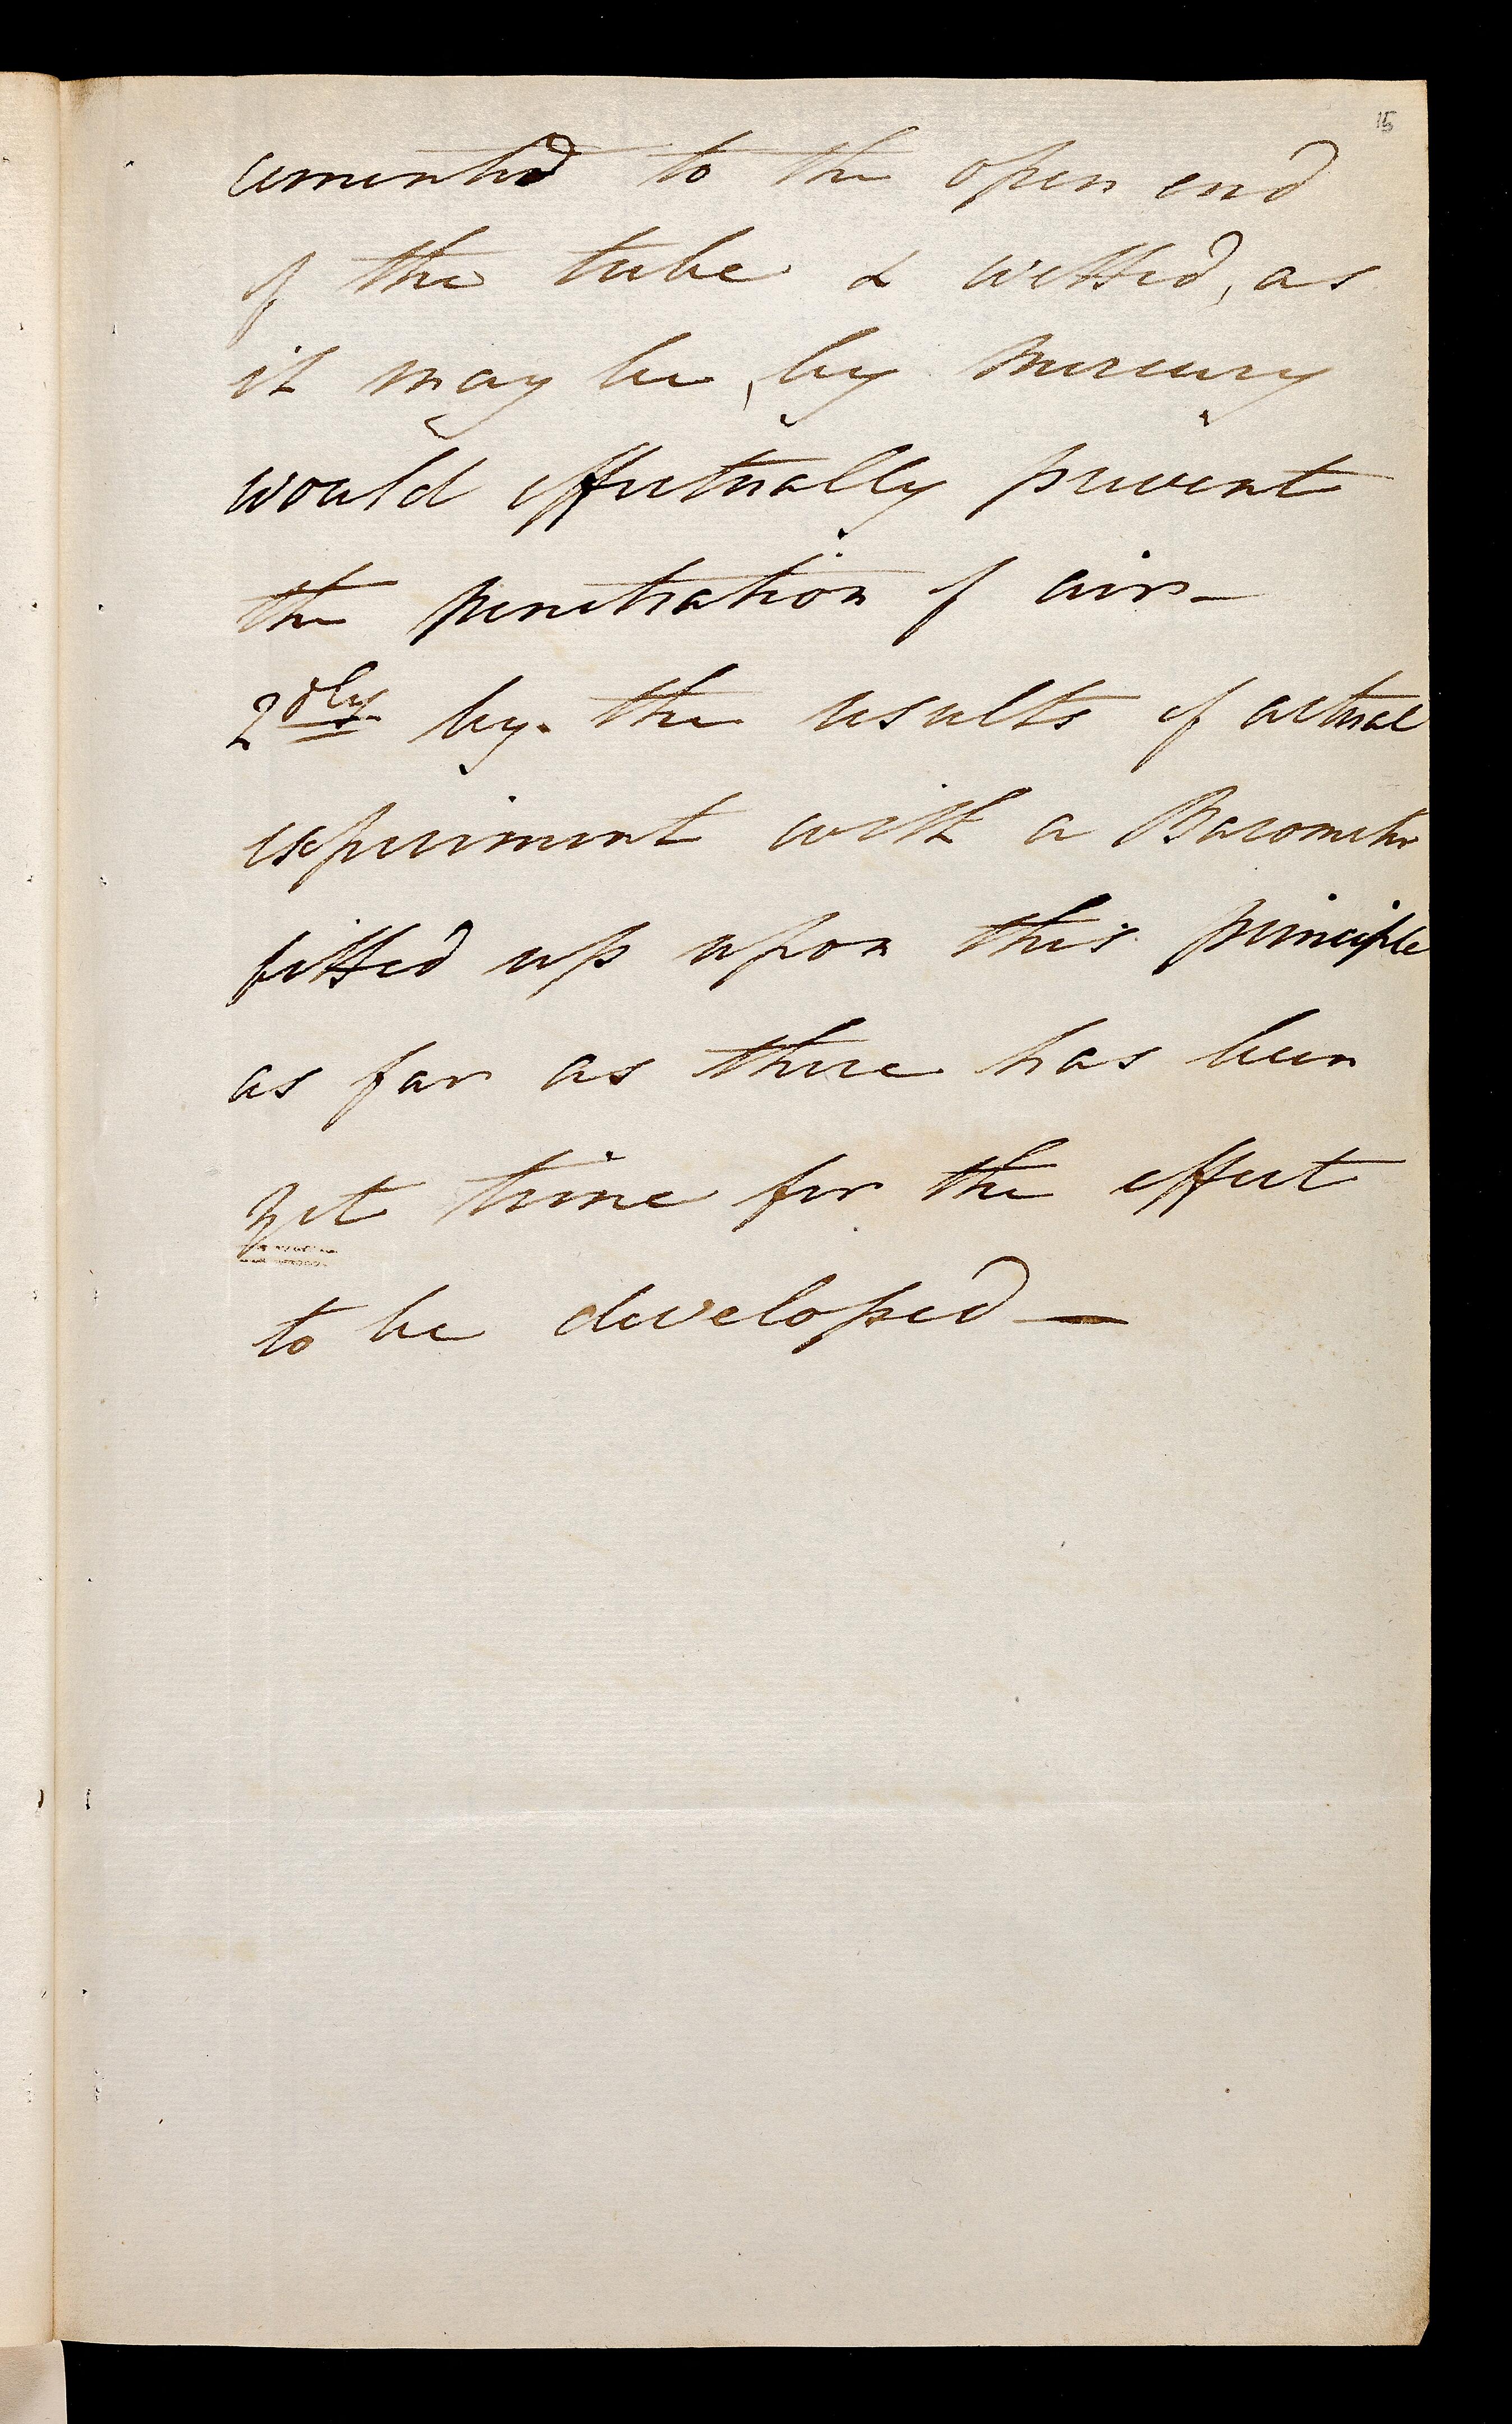 15
cemented to the open end
of the tube & wetted, as
it may be, by Mercury
would effectually prevent
the penetration of air –
2dly by the results of actual
experiment with a Barometer
fitted up upon this principle
as far as there has been
yet time for the effect
to be developed —